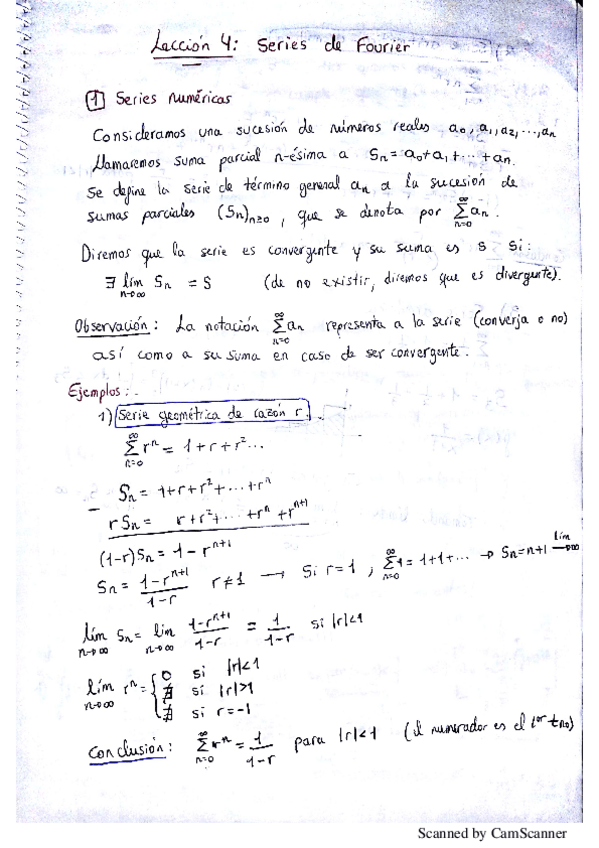 Lección 4: Series de Fourier
1 Series numéricas
Consideramos una sucesión de números reales a₀, a₁, a₂, ..., aₙ
Llamaremos suma parcial n-ésima a Sₙ = a₀+a₁+...+aₙ.
Se define la serie de término general aₙ a la sucesión de
sumas parciales (Sₙ)ₙ≥₀, que se denota por ∑_{n=0}^{∞} aₙ.
Diremos que la serie es convergente y su suma es S si:
∃ lím_{n→∞} Sₙ = S (de no existir, diremos que es divergente).
Observación: La notación ∑_{n=0}^{∞} aₙ representa a la serie (converja o no)
así como a su suma en caso de ser convergente.
Ejemplos:
1) Serie geométrica de razón r.
∑_{n=0}^{∞} rⁿ = 1+r+r²...
Sₙ = 1+r+r²+...+rⁿ
- r Sₙ = r+r²+...+rⁿ+rⁿ⁺¹
(1-r)Sₙ = 1 - rⁿ⁺¹
Sₙ = (1-rⁿ⁺¹)/(1-r) r≠1 → Si r=1, ∑_{n=0}^{∞} 1 = 1+1+... → Sₙ=n+1 lím→∞
lím_{n→∞} Sₙ = lím_{n→∞} (1-rⁿ⁺¹)/(1-r) = 1/(1-r) si |r|<1
lím_{n→∞} rⁿ = { 0 si |r|<1
∄ si |r|>1
∄ si r=-1
Conclusión: ∑_{n=0}^{∞} rⁿ = 1/(1-r) para |r|<1 (el numerador es el 1er tno)
Scanned by CamScanner